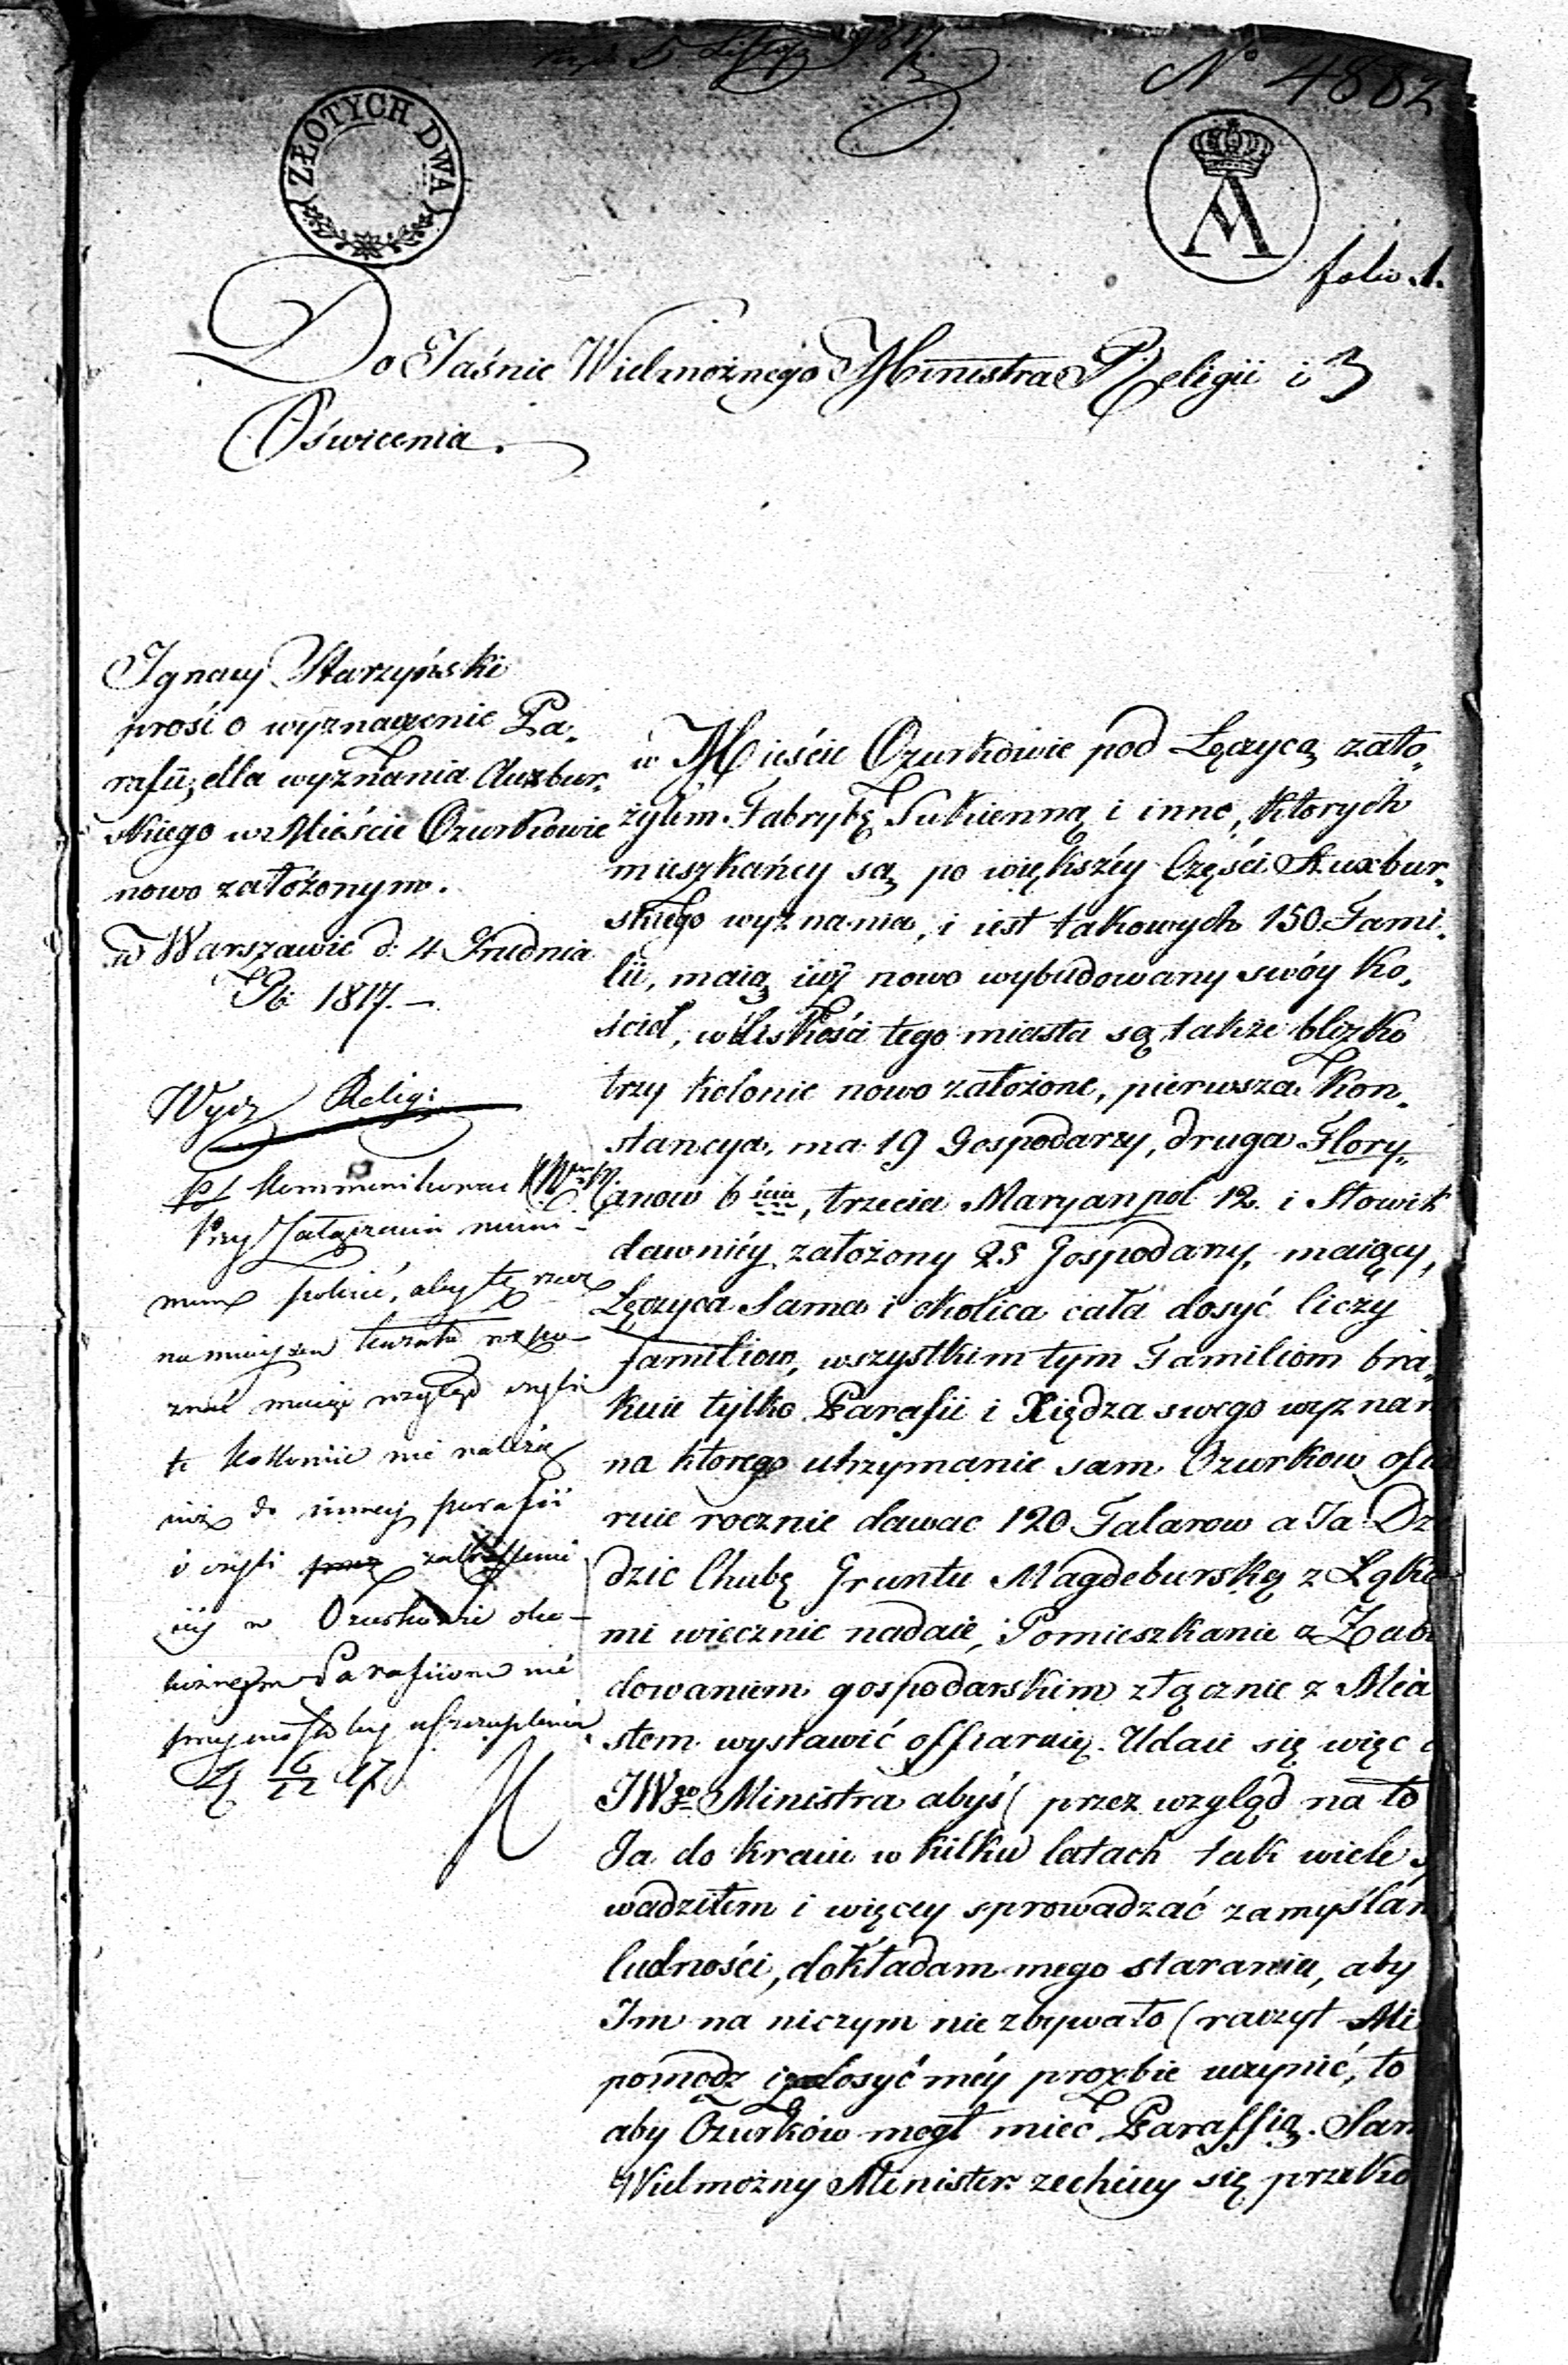 5 1817.
No 4882
ZŁOTYCH DWA
A
folio 1.
Do Jaśnie Wielmożnego Ministra Religii i
Oświecenia.
Ignacy Starzyński
prosi o wyznaczenie Pa-
rafii, dla wyznania Auxbur-
skiego w Mieście Ozurkowie
nowo założonym.
w Warszawie d: 4 Grudnia
R: 1817. —
Wydz Religi:
kommunikować
Przy załączeniu
prosić, aby tę rzecz
roz po-
znać maiąc wzgląd czyli
te kollonie nie należą
iuż do inney parafii
i czyli przez
iey w Ozurkowie oko-
licznym Parafiom nie
uszczuplenia
6/12 17
w Mieście Ozurkowie pod Łęczycą zało-
żyłem Fabrykę Sukienną i inne, których
mieszkańcy są po większéy Części Auxbur-
skiego wyznania, i iest takowych 150. Fami-
lii, maią iuż nowo wybudowany swóy Ko-
ściół, w bliskości tego miasta są także blizko
trzy kolonie nowo założone, pierwsza Kon-
stancya, ma 19 Gospodarzy, druga Flory-
anow 6ściu, trzecia Maryanpol 12. i Słowik
dawniéy założony 25 Gospodarzy, maiący,
Łęczyca Sama i okolica cała dosyć liczy
familiow, wszystkim tym Familiom bra-
kuie tylko Parafii i Xiędza swego wyznan
na którego utrzymanie sam Ozurkow ofia
ruie rocznie dawac 120 Talarow a Ja Dzie
dzic Chubę Gruntu Magdeburską z Łąka
mi wiecznie nadaie, Pomieszkanie z Zabu
dowaniem gospodarskim złącznie z Mia
stem wystawić offiaruię. Udaie się więc d
JWgo Ministra abyś ( przez wzgląd na to
Ja do kraiu w kilku latach tak wiele s
wadziłem i więcey sprowadzać zamyślam
ludności, dokładam mego starania, aby
Im na niczym nie zbywało ( raczył Mi
pomódz i zadosyć méy proźbie uczynić, to
aby Ozurków mógł mieć Paraffią. Sam
Wielmożny Minister zechcesz się przeko